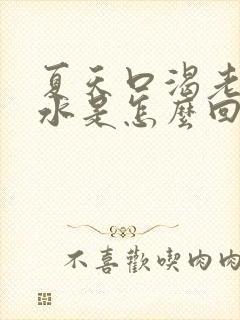 夏天口渴老
水是怎麽回
不喜歡喫肉肉